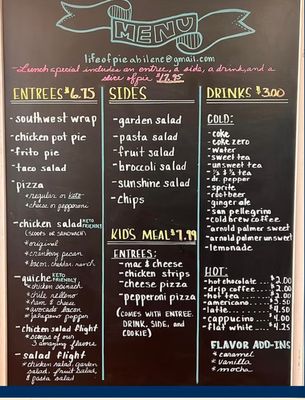 MENU
lifeofpieabilene@gmail.com
-Lunch special includes an entree, a side, a drink, and a
slice of pie $17.95
ENTREES $6.75
-southwest wrap
-chicken pot pie
-frito pie
-taco salad
-pizza
*regular or keto
*cheese or pepperoni
-chicken salad KETO FRIENDLY
(scoops or sandwich)
*original
*cranberry pecan
*bacon cheddar ranch
-quiche KETO FRIENDLY
*chicken spinach
*chile relleno
*ham & cheese
*avocado bacon
*jalapeno popper
-chicken salad flight
*scoops of our
3 amazing flavors
-salad flight
*chicken salad, garden
salad, fruit salad,
& pasta salad
SIDES
-garden salad
-pasta salad
-fruit salad
-broccoli salad
-sunshine salad
-chips
KIDS MEAL $7.99
ENTREES:
-mac & cheese
-chicken strips
-cheese pizza
-pepperoni pizza
(COMES WITH ENTREE,
DRINK, SIDE, and
COOKIE)
DRINKS $3.00
COLD:
-coke
-coke zero
-water
-sweet tea
-unsweet tea
-½ & ½ tea
-dr. pepper
-sprite
-rootbeer
-ginger ale
-san pellegrino
-cold brew coffee
-arnold palmer sweet
-arnold palmer unsweet
-lemonade
HOT:
-hot chocolate... $3.00
-drip coffee... $2.00
-hot tea... $2.00
-americano... $3.50
-latte... $4.50
-cappucino... $4.00
-flat white... $4.25
FLAVOR ADD-INS
*caramel
*vanilla
*mocha